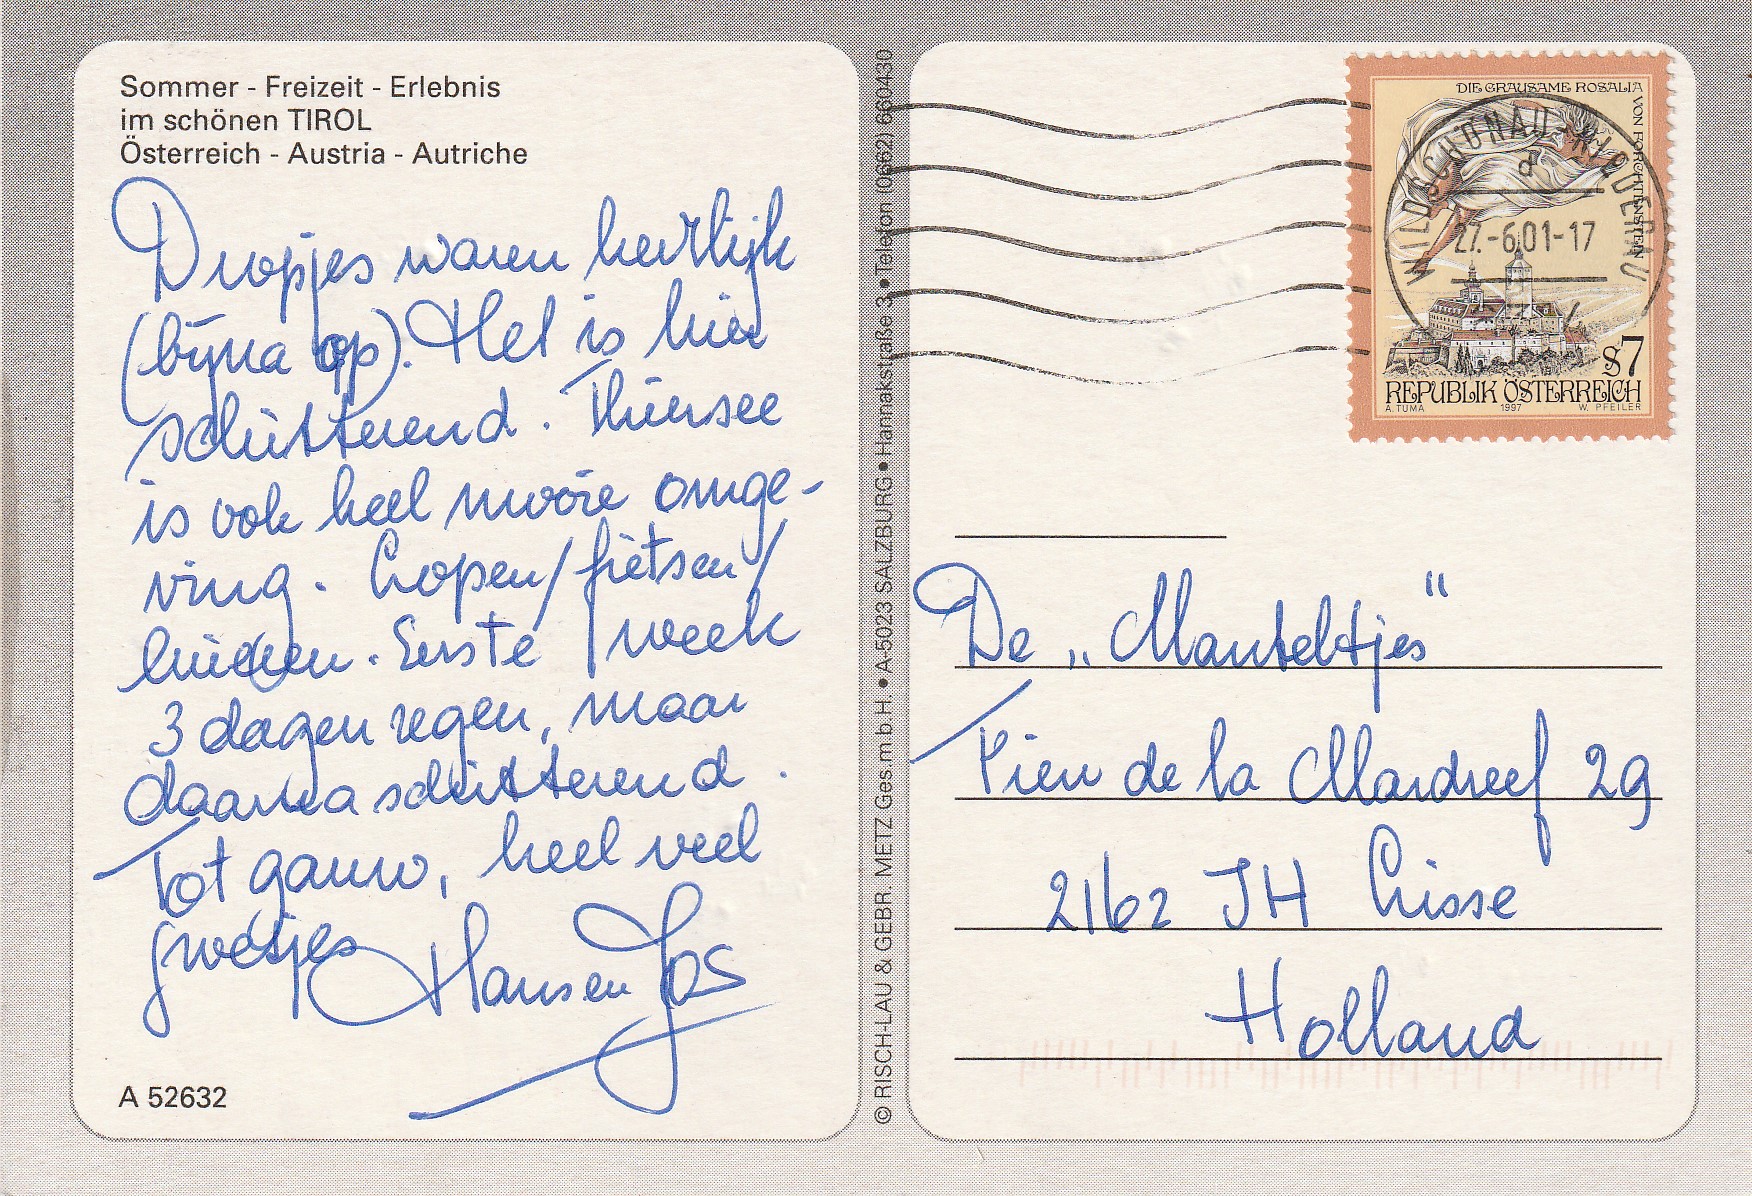 Sommer - Freizeit - Erlebnis
im schönen TIROL
Österreich - Austria - Autriche
Dropjes waren heerlijk
(bijna op). Het is hier
schitterend. Thiersee
is ook heel mooie omge-
ving. Lopen/fietsen/
luieren. Eerste week
3 dagen regen, maar
daarna schitterend.
Tot gauw, heel veel
groetjes Hans en Jos
A 52632
© RISCH-LAU & GEBR. METZ Ges.m.b.H. • A-5023 SALZBURG • Hannakstraße 3 • Telefon (0662) 660430
DIE GRAUSAME ROSALIA
VON FORCHTENSTEIN
WILDSCHÖNAU-NIEDERAU
a
27.-6.01-17
S7
REPUBLIK ÖSTERREICH
A. TUMA 1997 W. PFEILER
De „Manteltjes“
Pien de la Mardreef 29
2162 JH Lisse
Holland